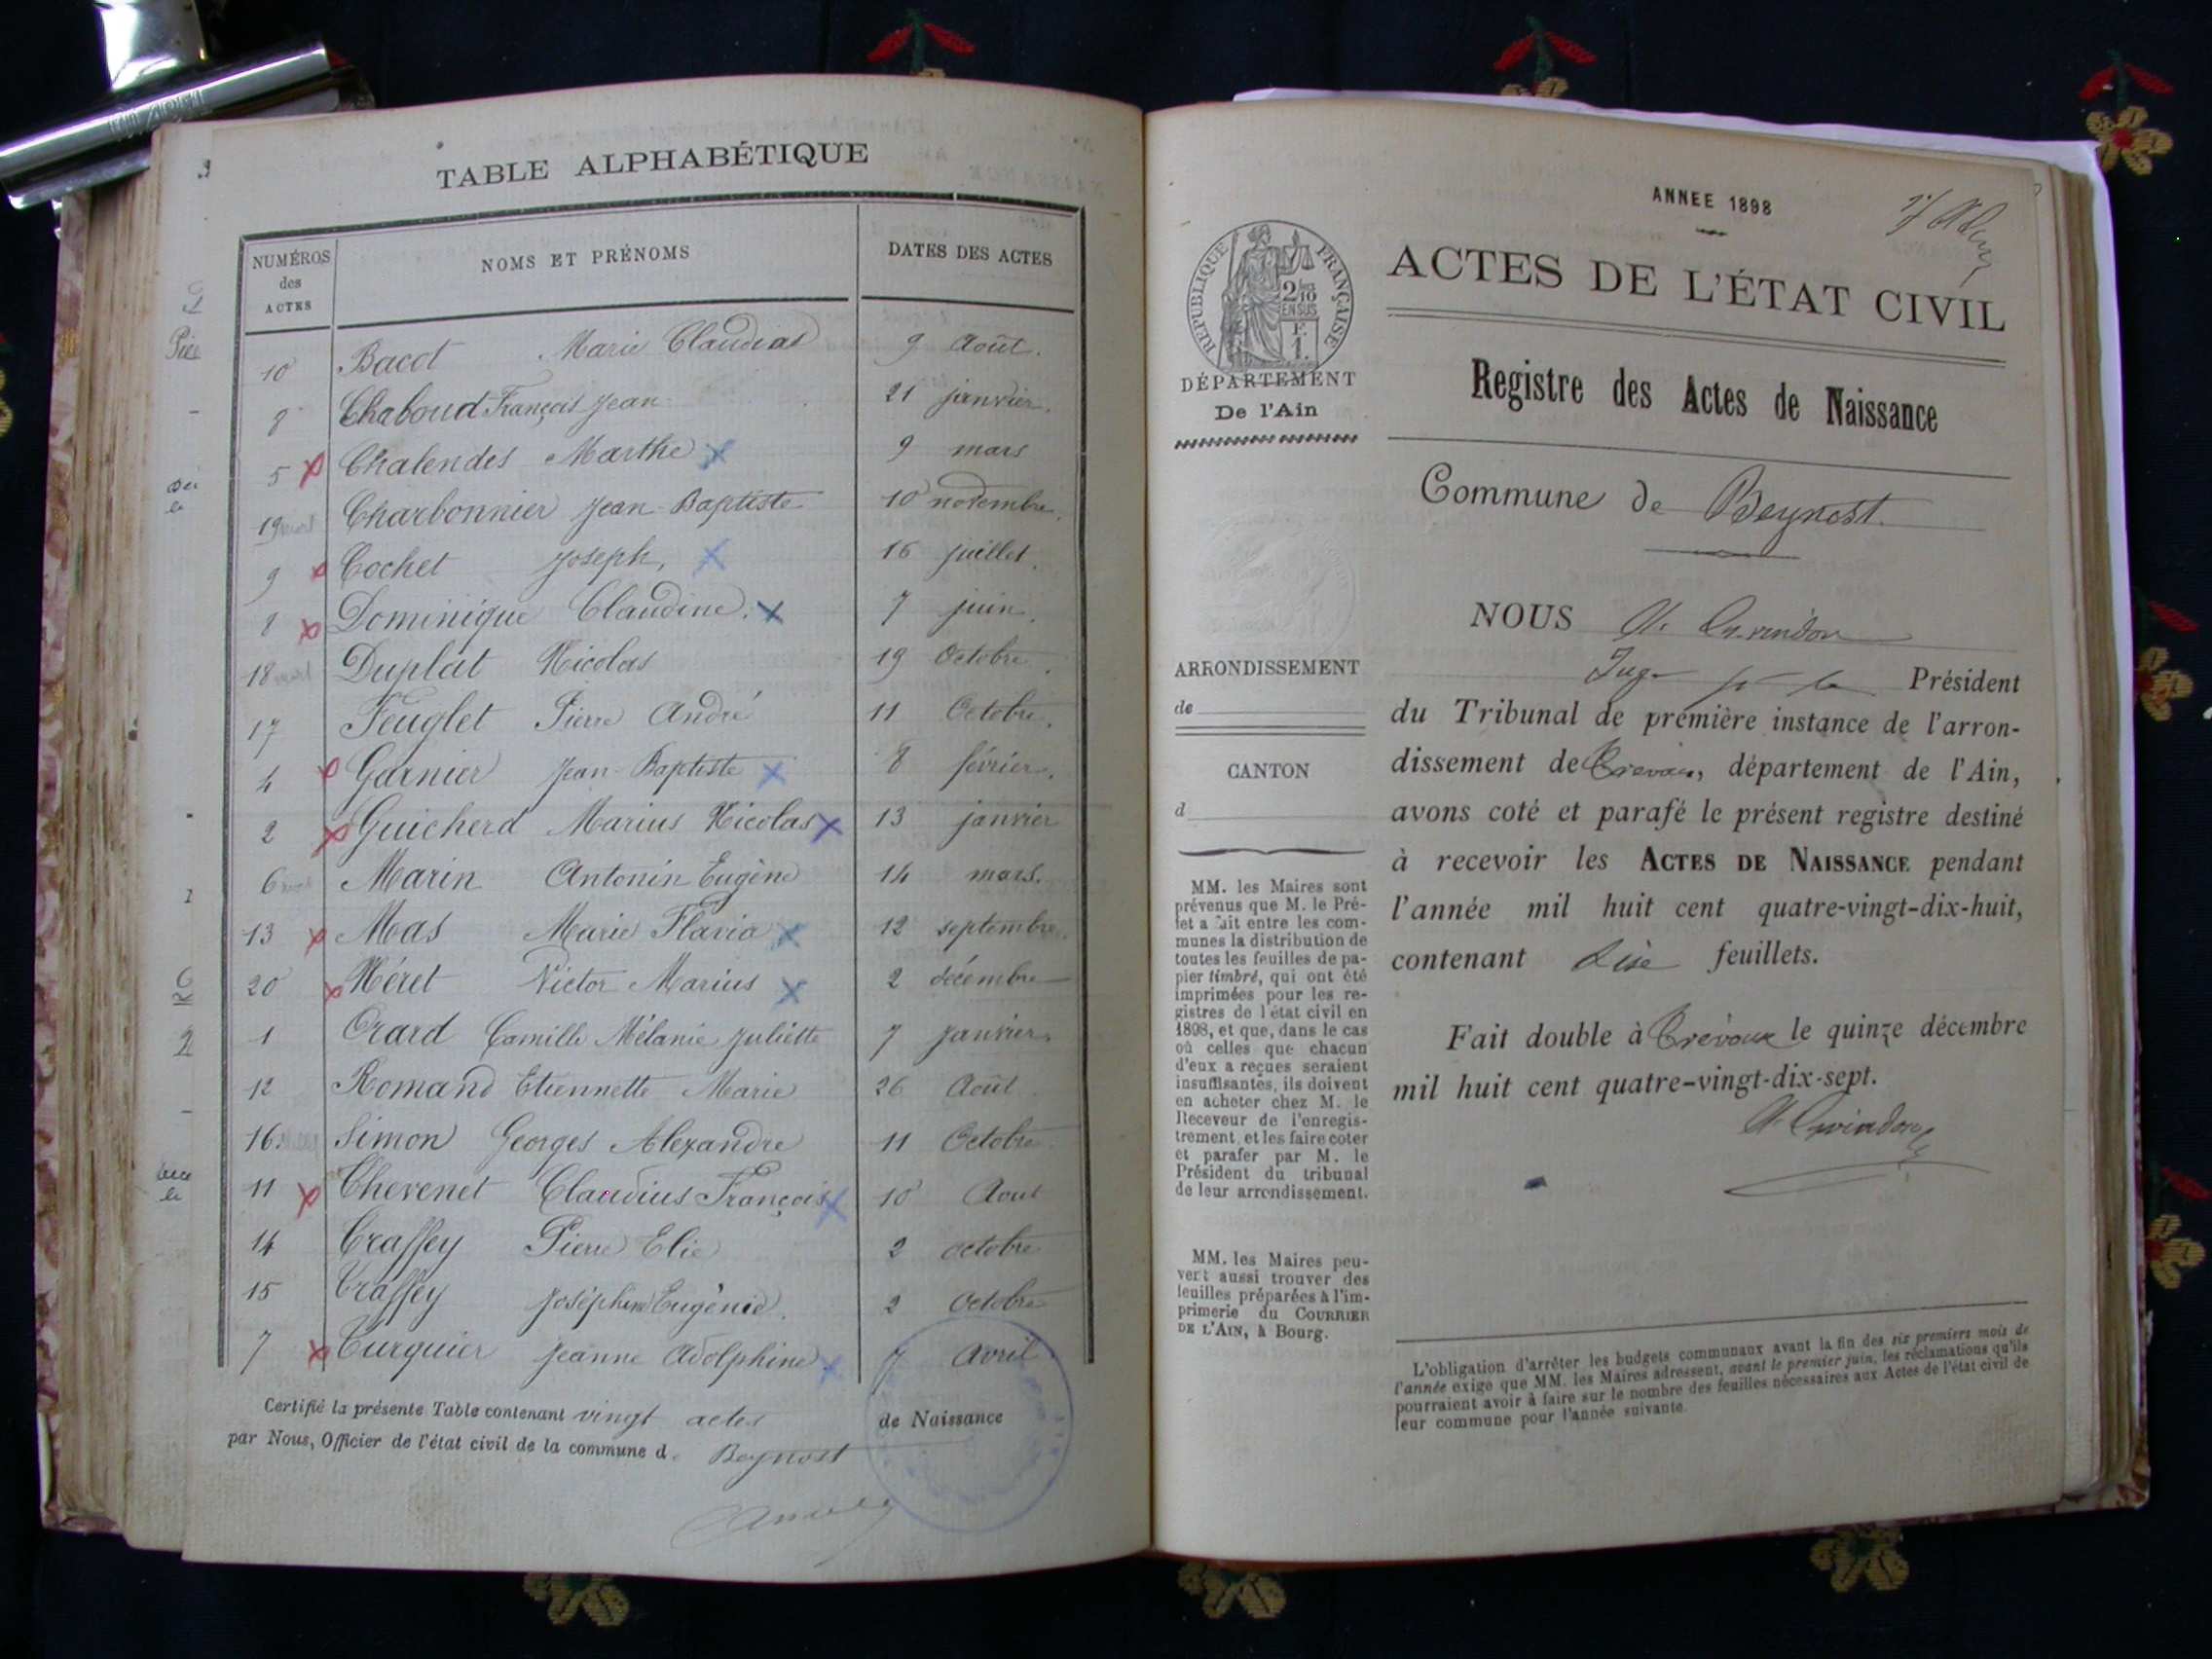 TABLE ALPHABÉTIQUE
NUMÉROS
des
ACTES
NOMS ET PRÉNOMS
DATES DES ACTES
10 Bacot Marie Claudias 9 Août.
8 Chaboud François Jean 21 janvier.
5 Chalendes Marthe 9 mars
19 Charbonnier Jean-Baptiste 10 novembre.
9 Cochet Joseph, 16 juillet.
8 Dominique Claudine. 7 juin.
18 Duplat Nicolas 19 Octobre.
17 Feuglet Pierre André 11 Octobre.
4 Garnier Jean-Baptiste 8 février.
2 Guicherd Marius Nicolas 13 janvier
6 Marin Antonin Eugène 14 mars.
13 Mas Marie Flavia 12 septembre.
20 Néret Victor Marius 2 décembre
1 Orard Camille Mélanie Juliette 7 Janvier.
12 Romand Etiennette Marie 26 Août
16 Simon Georges Alexandre 11 Octobre.
11 Thevenet Claudius François 10 Aout
14 Traffey Pierre Elie 2 octobre
15 Traffey Joséphine Eugénie. 2 Octobre
7 Turquier Jeanne Adolphine 7 Avril
Certifié la présente Table contenant vingt actes de Naissance
par Nous, Officier de l'état civil de la commune d. Beynost
ANNEE 1898
ACTES DE L'ÉTAT CIVIL
RÉPUBLIQUE FRANÇAISE
2/10
EN SUS
F.
1.
DÉPARTEMENT
De l'Ain
Registre des Actes de Naissance
Commune de Beynost.
ARRONDISSEMENT
de
CANTON
d
MM. les Maires sont
prévenus que M. le Pré-
fet a fait entre les com-
munes la distribution de
toutes les feuilles de pa-
pier timbré, qui ont été
imprimées pour les re-
gistres de l'état civil en
1898, et que, dans le cas
où celles que chacun
d'eux a reçues seraient
insuffisantes, ils doivent
en acheter chez M. le
Receveur de l'enregis-
trement et les faire coter
et parafer par M. le
Président du tribunal
de leur arrondissement.
MM. les Maires peu-
vent aussi trouver des
feuilles préparées à l'im-
primerie du COURRIER
DE L'AIN, à Bourg.
NOUS
Juge Président
du Tribunal de première instance de l'arron-
dissement de Trévoux, département de l'Ain,
avons coté et parafé le présent registre destiné
à recevoir les ACTES DE NAISSANCE pendant
l'année mil huit cent quatre-vingt-dix-huit,
contenant feuillets.
Fait double à Trévoux le quinze décembre
mil huit cent quatre-vingt-dix-sept.
L'obligation d'arrêter les budgets communaux avant la fin des six premiers mois de
l'année exige que MM. les Maires adressent, avant le premier juin, les réclamations qu'ils
pourraient avoir à faire sur le nombre des feuilles nécessaires aux Actes de l'état civil de
leur commune pour l'année suivante.